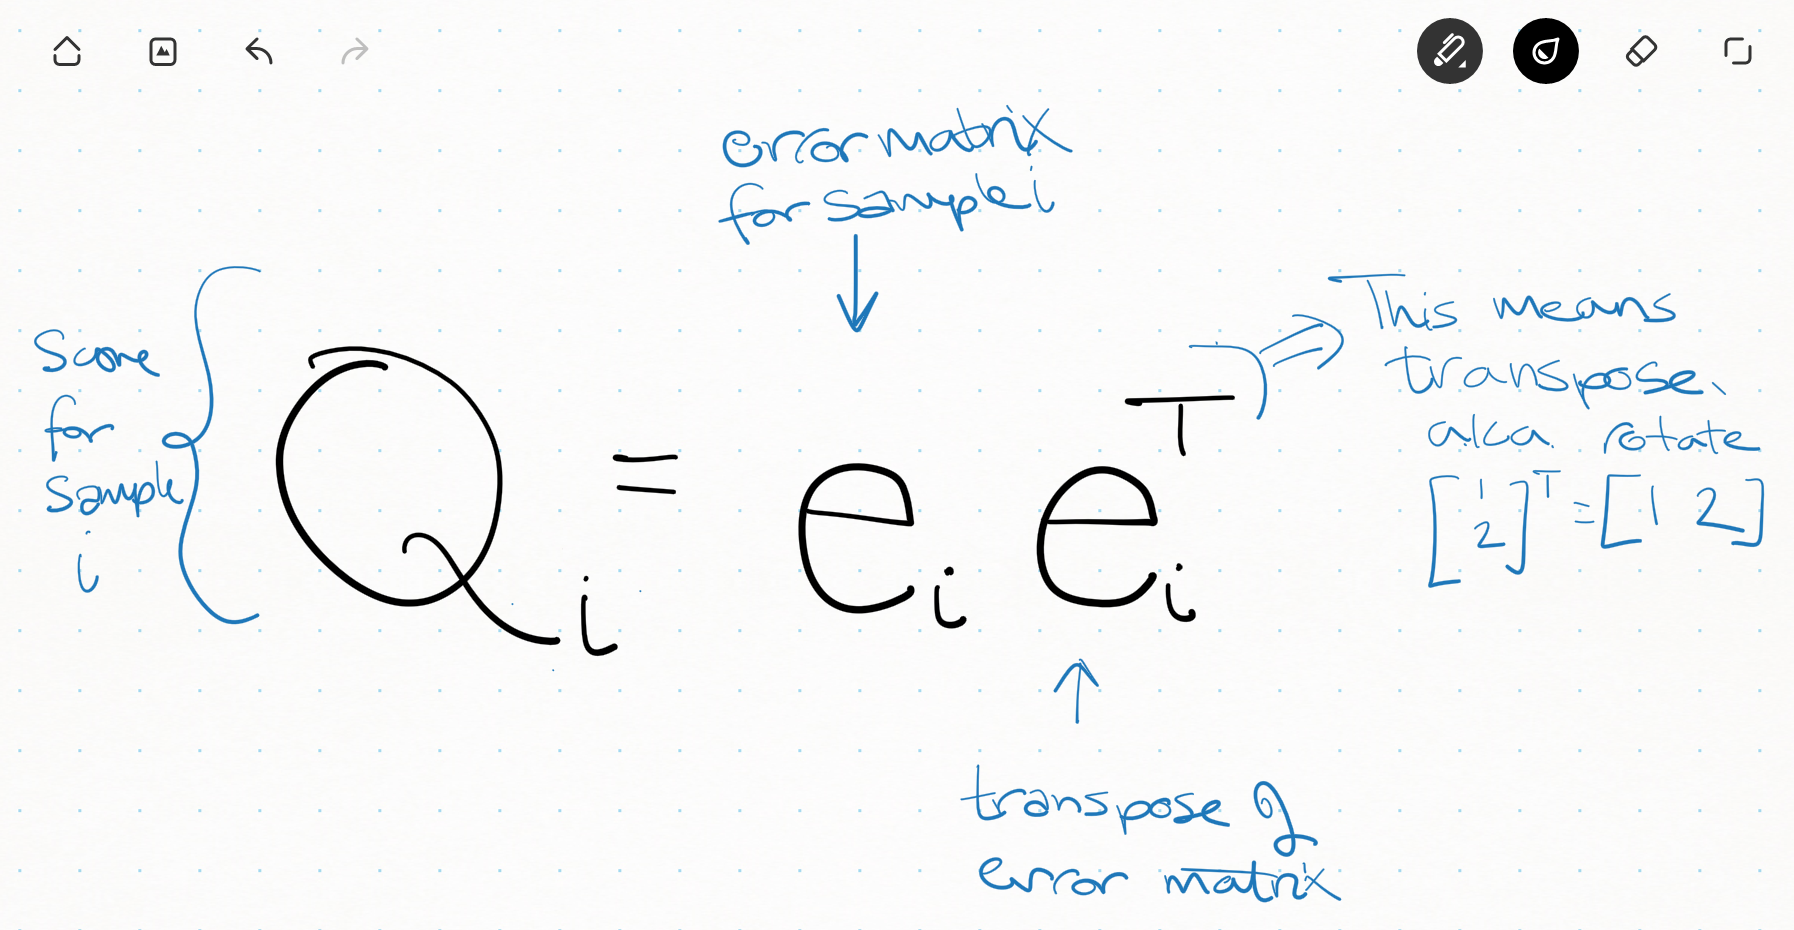 error matrix
for sample i
Score
for
Sample
i
Qᵢ = eᵢ eᵢᵀ
This means
transpose.
aka rotate
[1 2]ᵀ = [1 2]
transpose of
error matrix